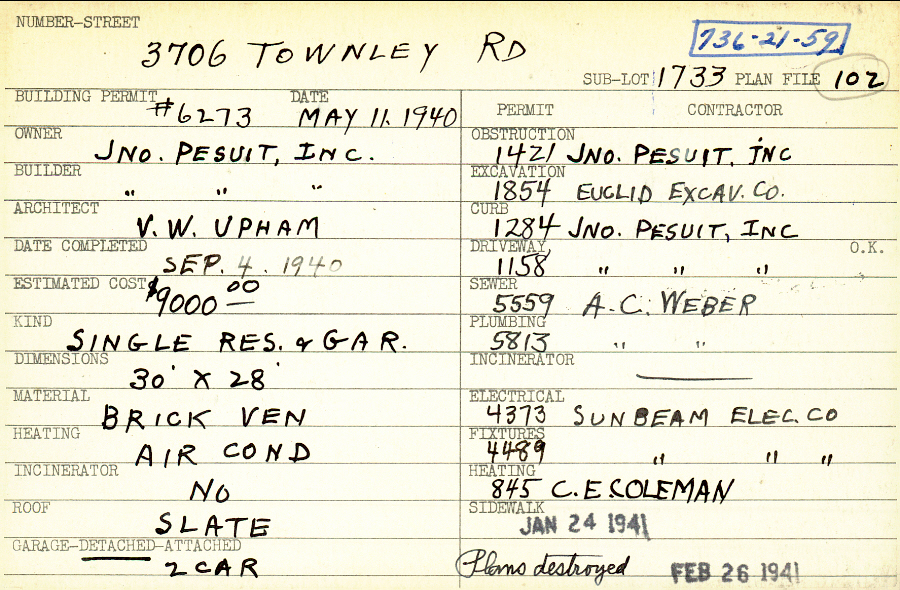 NUMBER-STREET
3706 TOWNLEY RD
736-21-59
SUB-LOT 1733 PLAN FILE 102
BUILDING PERMIT #6273 DATE MAY 11. 1940
OWNER
JNO. PESUIT, INC.
BUILDER
" " "
ARCHITECT
V. W. UPHAM
DATE COMPLETED
SEP. 4. 1940
ESTIMATED COST $9000 00
KIND
SINGLE RES. & GAR.
DIMENSIONS
30' X 28'
MATERIAL
BRICK VEN
HEATING
AIR COND
INCINERATOR
NO
ROOF
SLATE
GARAGE-DETACHED-ATTACHED
2 CAR
PERMIT CONTRACTOR
OBSTRUCTION
1421 JNO. PESUIT, INC
EXCAVATION
1854 EUCLID EXCAV. CO.
CURB
1284 JNO. PESUIT, INC
DRIVEWAY O.K.
1158 " " "
SEWER
5559 A.C. WEBER
PLUMBING
5813 " "
INCINERATOR
ELECTRICAL
4373 SUNBEAM ELEC. CO
FIXTURES
4489 " " "
HEATING
845 C. E. COLEMAN
SIDEWALK
JAN 24 1941
Plans destroyed FEB 26 1941